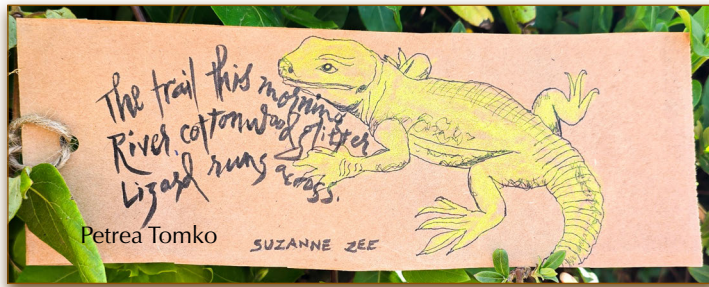 The trail this morning
River, cottonwood glitter
Lizard runs across.
Petrea Tomko
SUZANNE ZEE